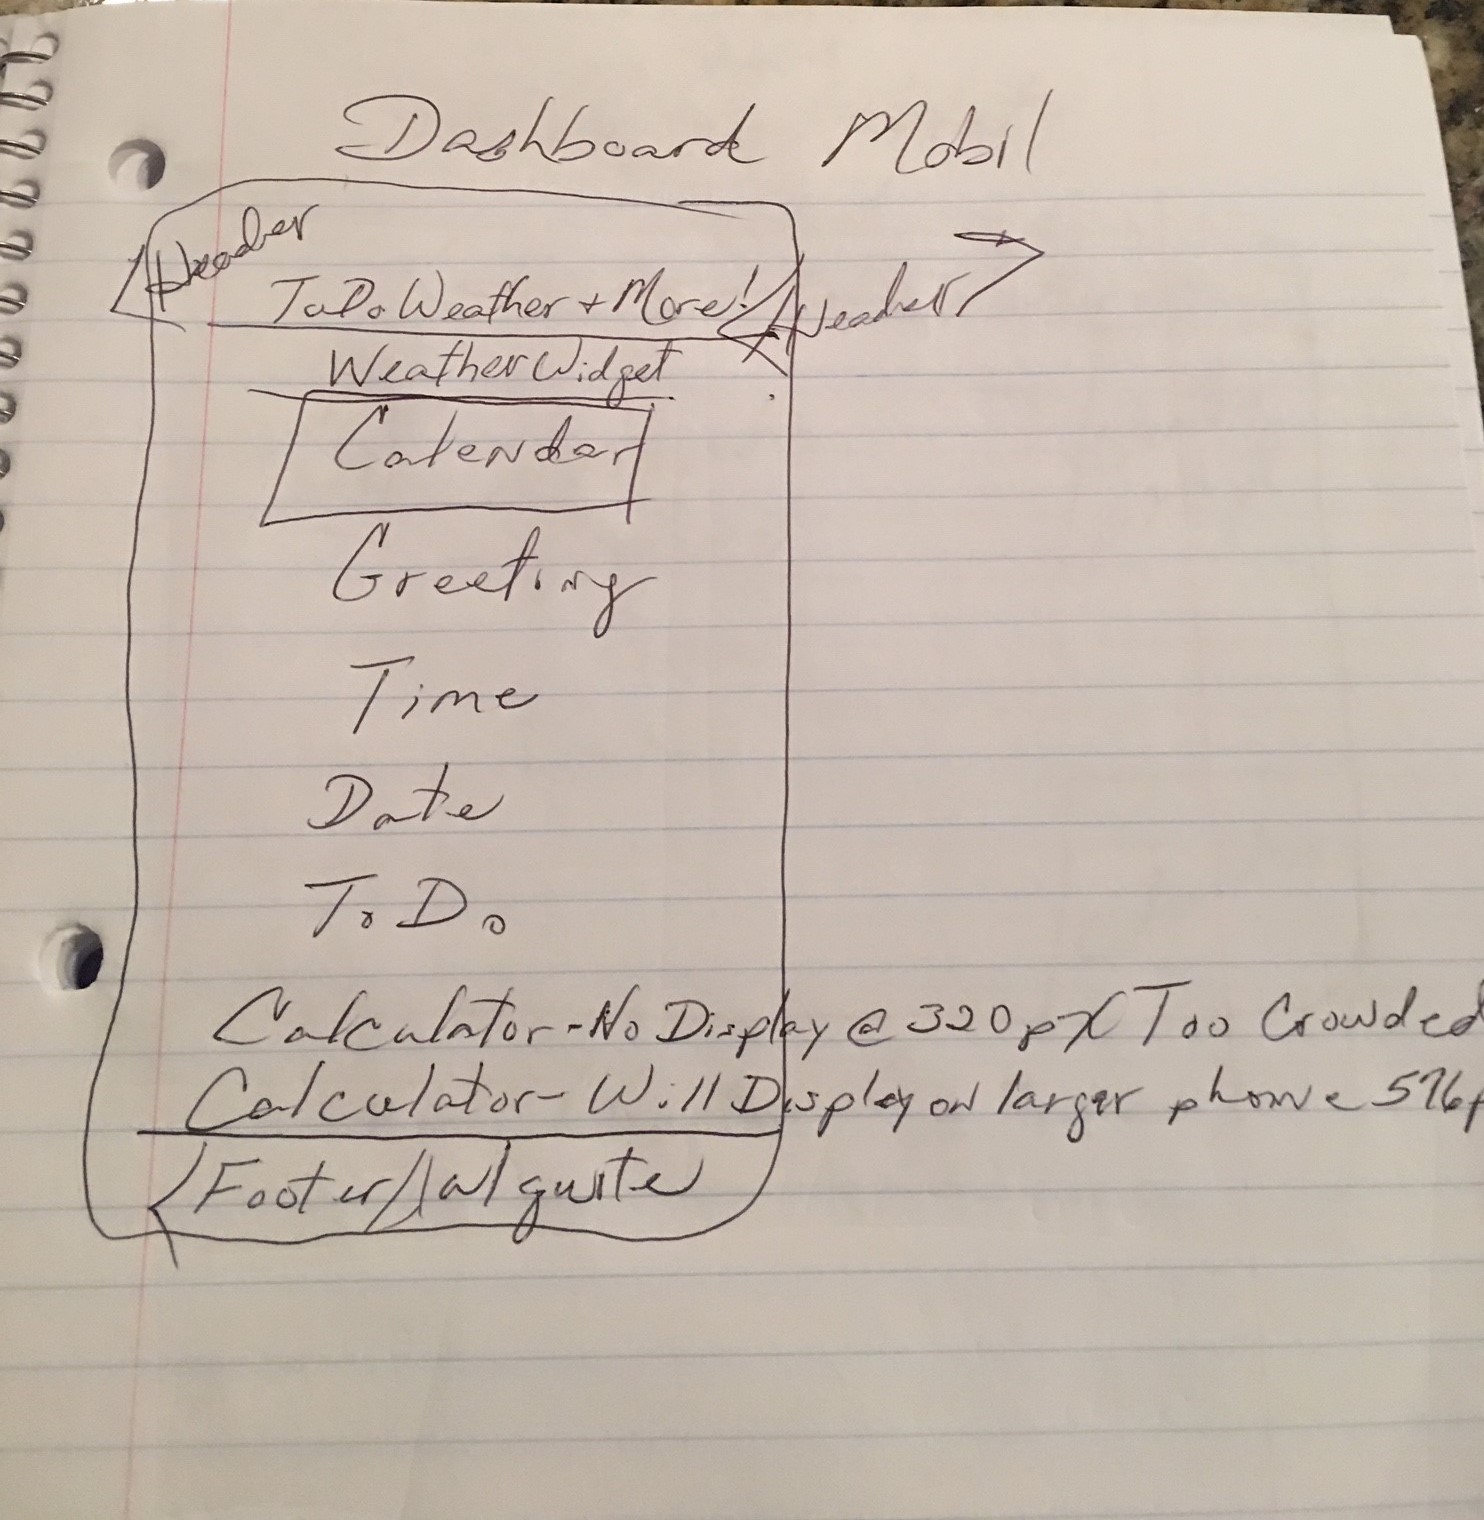 Dashboard Mobil
<Header
ToDo Weather + More!
<Header>
Weather Widget
Calendar
Greeting
Time
Date
To Do
Calculator - No Display @ 320px Too Crowded
Calculator - Will Display on larger phone 576p
<Footer/ w/ quote